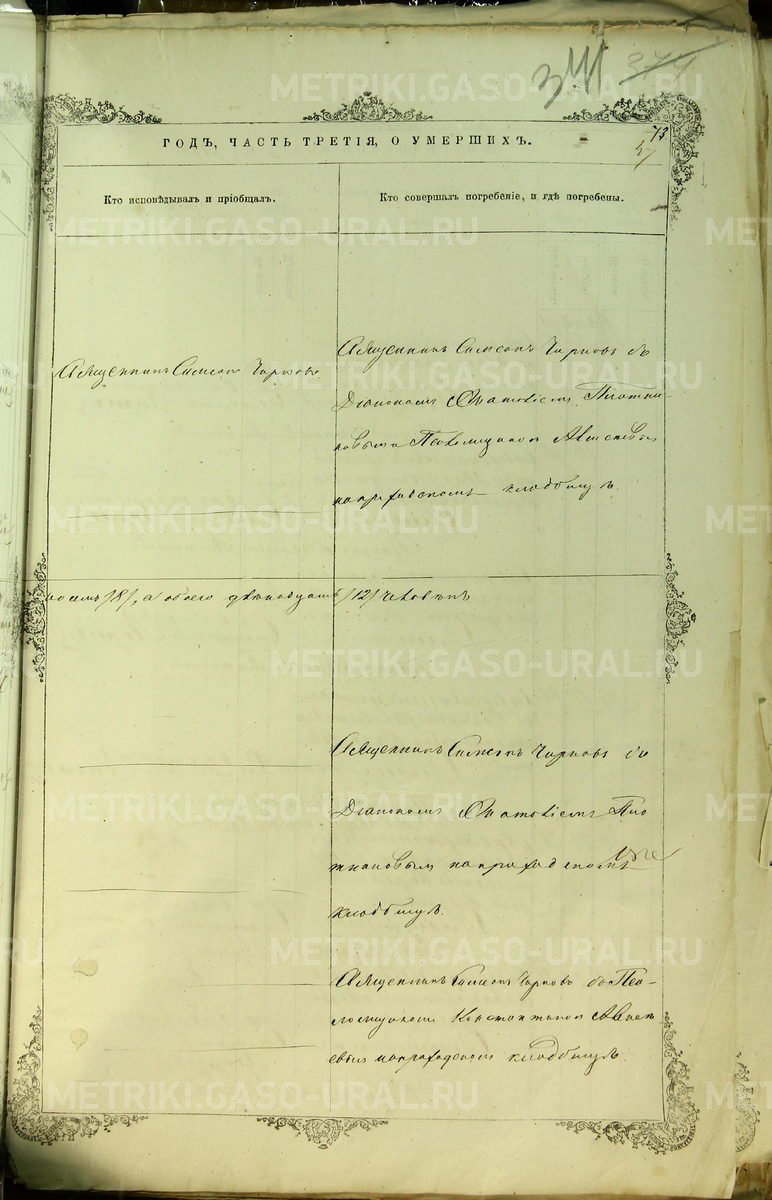 341 374
ГОДЪ, ЧАСТЬ ТРЕТІЯ, О УМЕРШИХЪ.
73
57
Кто исповѣдывалъ и пріобщалъ.
Кто совершалъ погребеніе, и гдѣ погребены.
Священникъ Симеонъ Чирковъ
Священникъ Симеонъ Чирковъ съ
Діакономъ Плотни-
ковымъ и Псаломщикомъ
на приходскомъ кладбищѣ.
восемь /8/, а обоего двѣнадцать /12/ человѣкъ
Священникъ Симеонъ Чирковъ съ
Діакономъ Пло
тниковымъ на приходскомъ
кладбищѣ.
Священникъ Симеонъ Чирковъ съ Пса-
ломщикомъ Константиномъ
на приходскомъ кладбищѣ.
METRIKI.GASO-URAL.RU